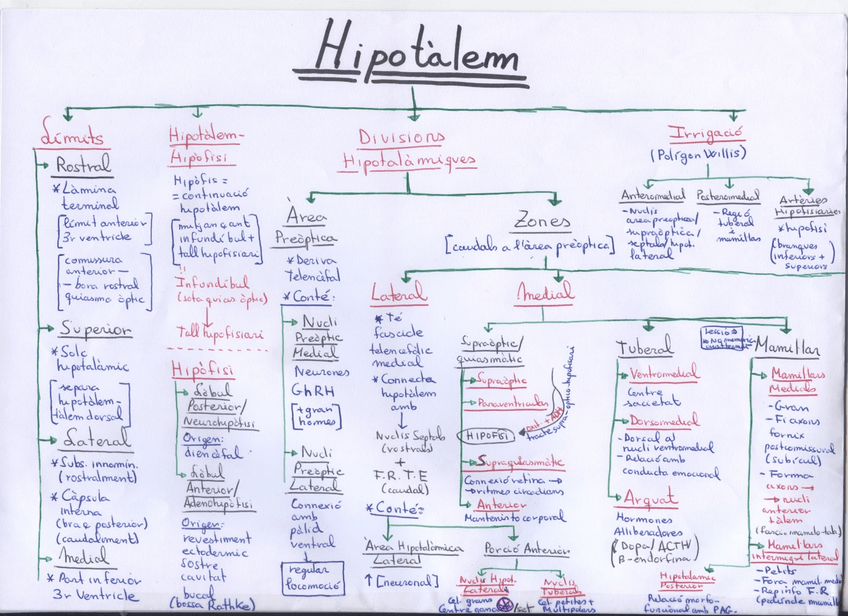 Hipotàlem
Límits
Rostral
* Làmina
terminal
[límit anterior
3r ventricle]
[comissura
anterior —
— bora rostral
quiasma òptic]
Superior
* Solc
hipotalàmic
[separa
hipotàlem-
tàlem dorsal]
Lateral
* Subs. innomin.
(rostralment)
* Càpsula
interna
(braç posterior)
(caudalment)
Medial
* Part inferior
3r Ventricle
Hipotàlem-
Hipòfisi
Hipòfis =
= continuació
hipotàlem
[mitjançant
infundíbul +
tall hipofisiari]
Infundíbul
(sota quias. òptic)
Tall hipofisiari
Hipòfisi
Lòbul
Posterior/
Neurohipòfisi
Origen:
diencèfal
Lòbul
Anterior/
Adenohipòfisi
Origen:
revestiment
ectodermic
sostre
cavitat
bucal
(bossa Rathke)
Divisions
Hipotalàmiques
Àrea
Preòptica
* Deriva
Telencèfal
* Conté:
Nucli
Preòptic
Medial
Neurones
GhRH
[+ gran
homes]
Nucli
Preòptic
Lateral
Connexió
amb
pàl·lid
ventral
regular
locomoció
Zones
[caudals a l'àrea preòptica]
Lateral
* Té
fascicle
telencefàlic
medial
* Connecta
hipotàlem
amb
Nuclis Septals
(rostral)
+
F.R.T.E
(caudal)
* Conté:
Àrea Hipotalàmica
Lateral
↑ [neuronal]
Porció Anterior
Nuclis Hipot.
Laterals
Cèl. grans
Centre gana /set
Nuclis
Tuberals
Cèl. petites +
Multipolars
Medial
Supraòptic/
quiasmàtic
Supraòptic
Paraventricular
HIPÒFISI
tracte supra-òptico-hipofisari
Supraquiasmàtic
Connexió retina →
→ ritmes circadians
Anterior
Manteniment corporal
Tuberal
Ventromedial
Centre
societat
Dorsomedial
- Dorsal al
nucli ventromedial
- Relació amb
conducta emocional
Arquat
Hormones
Alliberadores
(Dopa/ACTH/
B-endorfina)
Hipotàlem
Posterior
Relació morfo-
funcional amb PAG.
Mamillar
Mamillars
Medials
- Gran
- Fi axons
fornix
postcomissural
(subícul)
- Forma
axons →
→ nucli
anterior
tàlem
Mamillars
intermig i lateral
- Petits
- Fora mamil. medial
- Rep info F.R
Irrigació
(Polígon Willis)
Anteromedial
- Nuclis
area preoptica/
supraòptica/
septals/hipot.
lateral
Posteromedial
- Regió
tuberal
i
mamillar
Artèries
Hipofisiaries
* hipòfisi
(branques
inferiors +
superiors